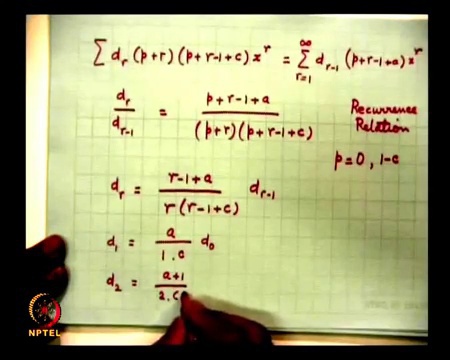 ∑ d_r (p+r)(p+r-1+c) x^r = ∑_{r=1}^{∞} d_{r-1} (p+r-1+a) x^r
d_r / d_{r-1} = (p+r-1+a) / ((p+r)(p+r-1+c))
Recurrence
Relation
p=0, 1-c
d_r = (r-1+a) / (r(r-1+c)) d_{r-1}
d_1 = a / (1.c) d_0
d_2 = (a+1) / (2.(
NPTEL